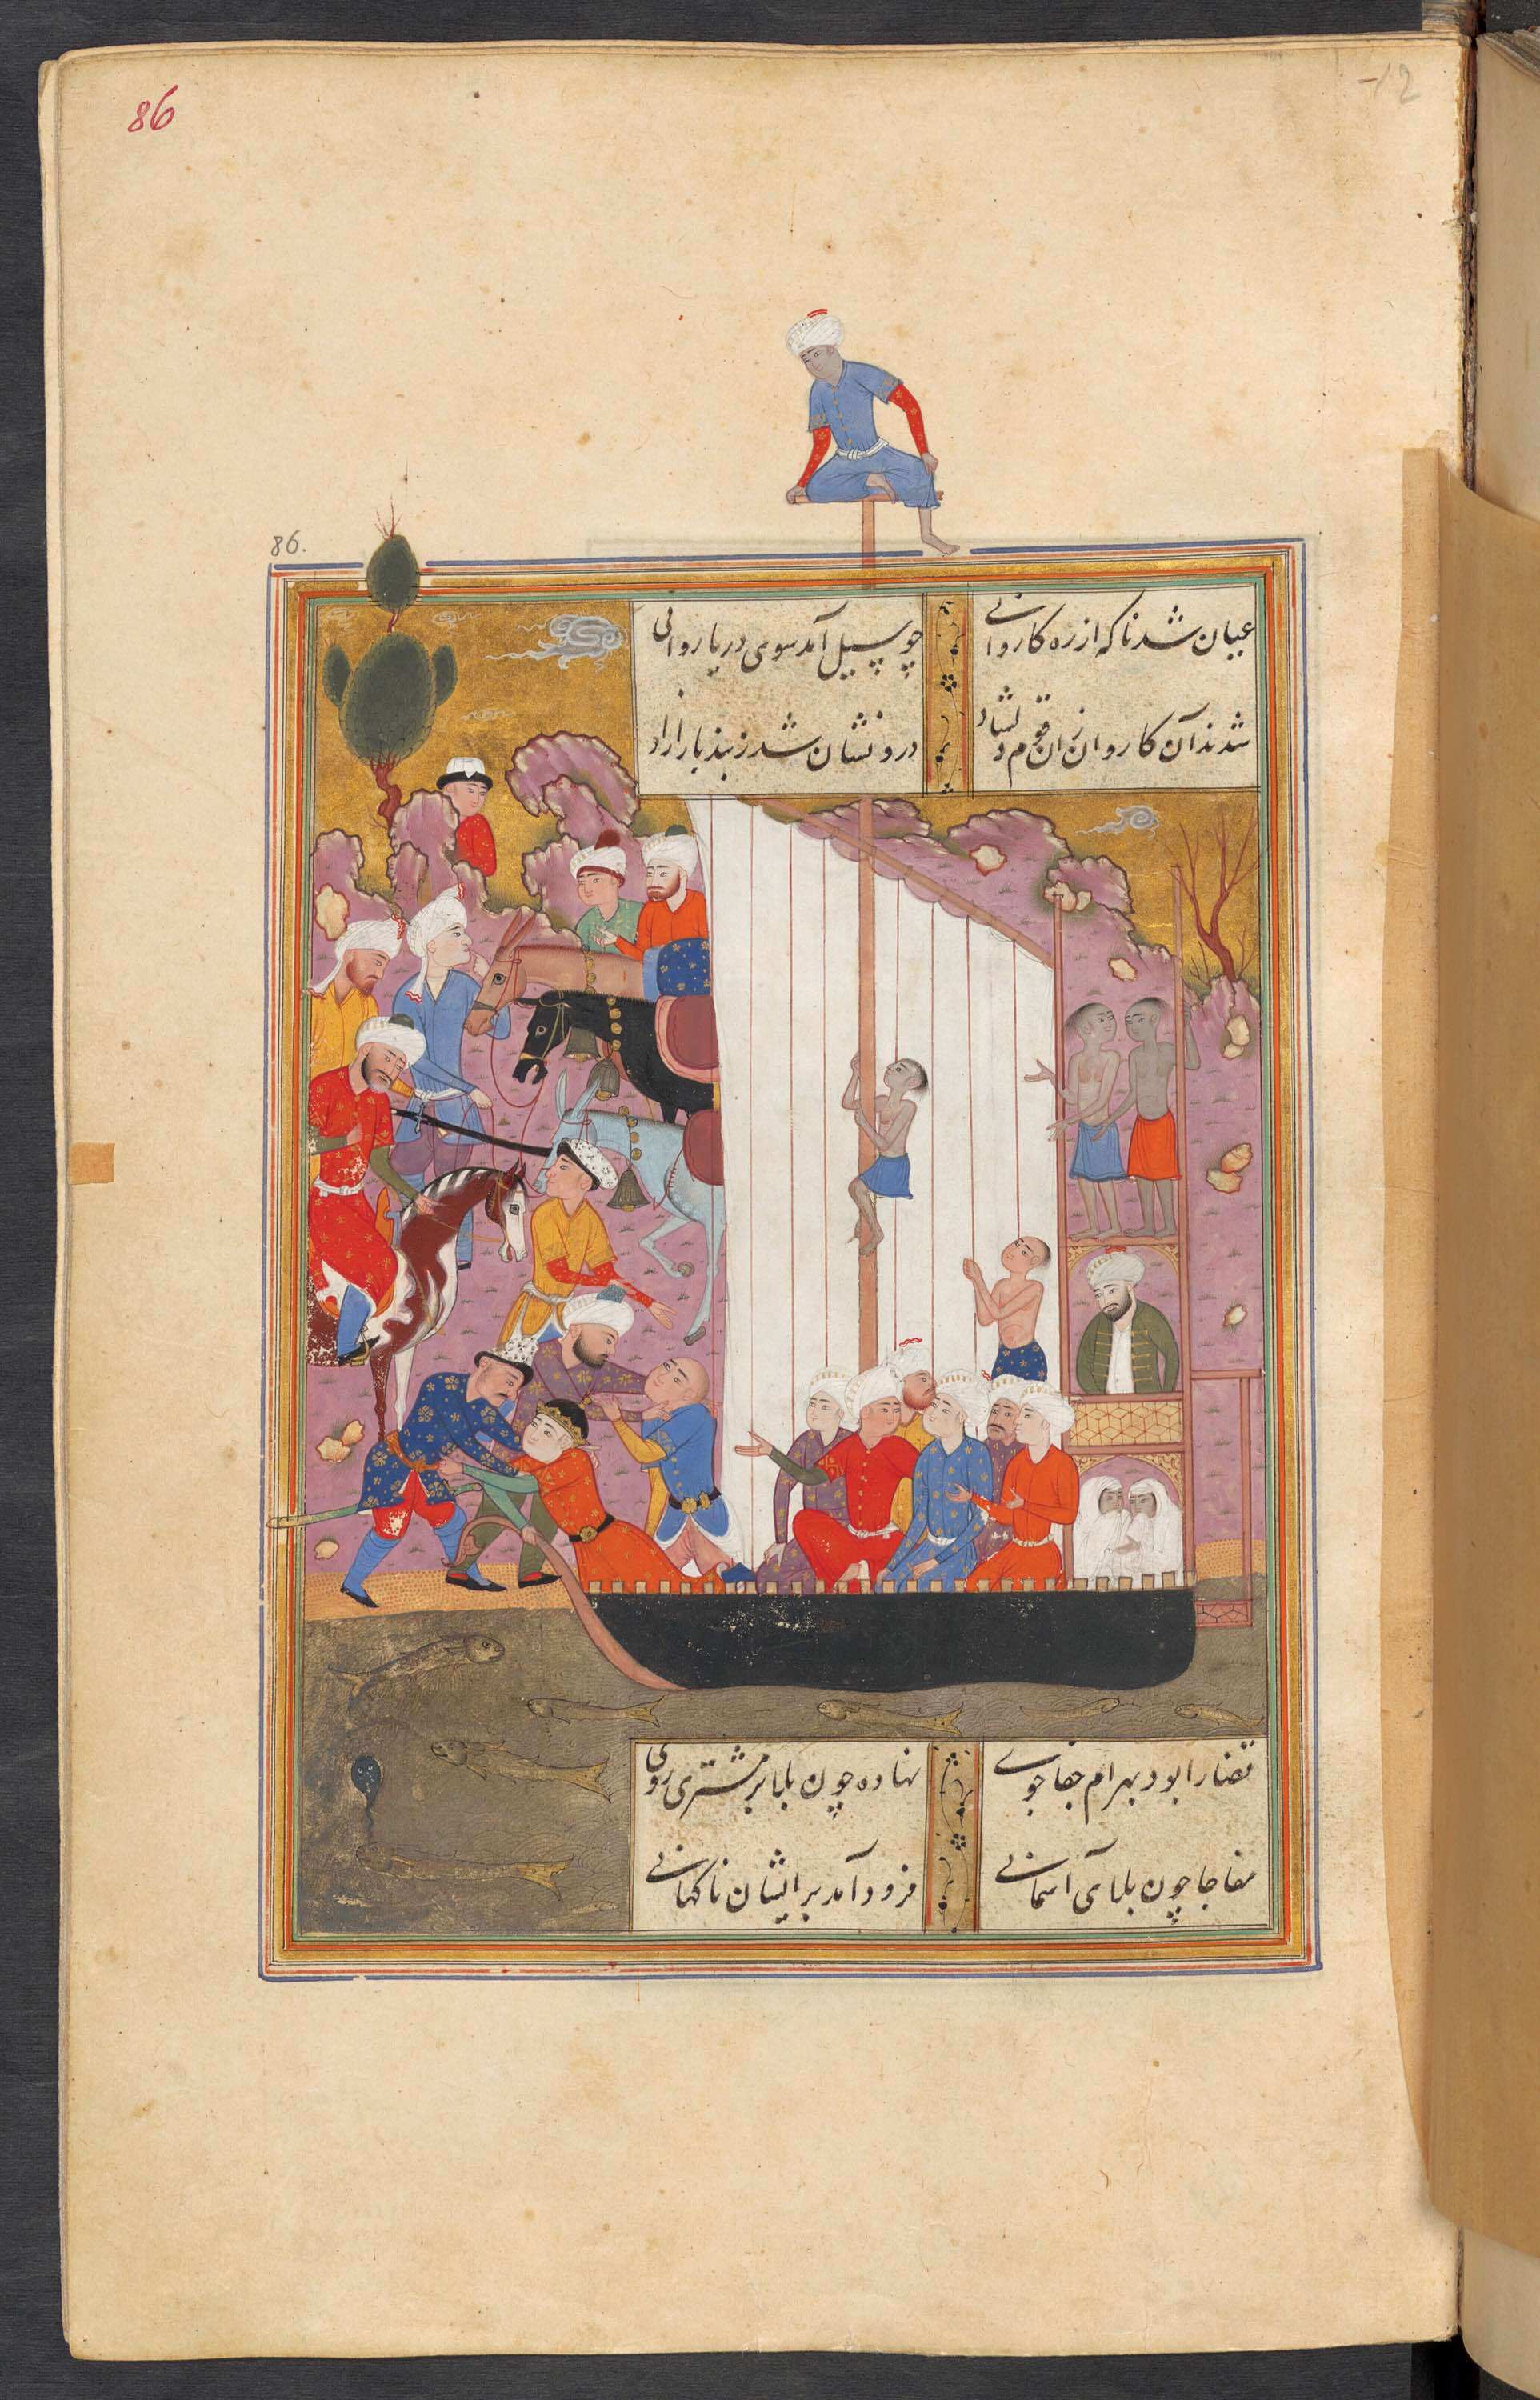 86
-12
86.
عیان شد ناکه از ره کاروانی
چو سیل آمد سوی دریا روانی
شدند آن کاروان زان قوم دلشاد
درونشان شد ز بند بار آزاد
قضا را بود بهرام جفاجوی
نهاده چون بلا بر مشتری روی
مفاجا چون بلای آسمانی
فرود آمد بر ایشان ناکهانی